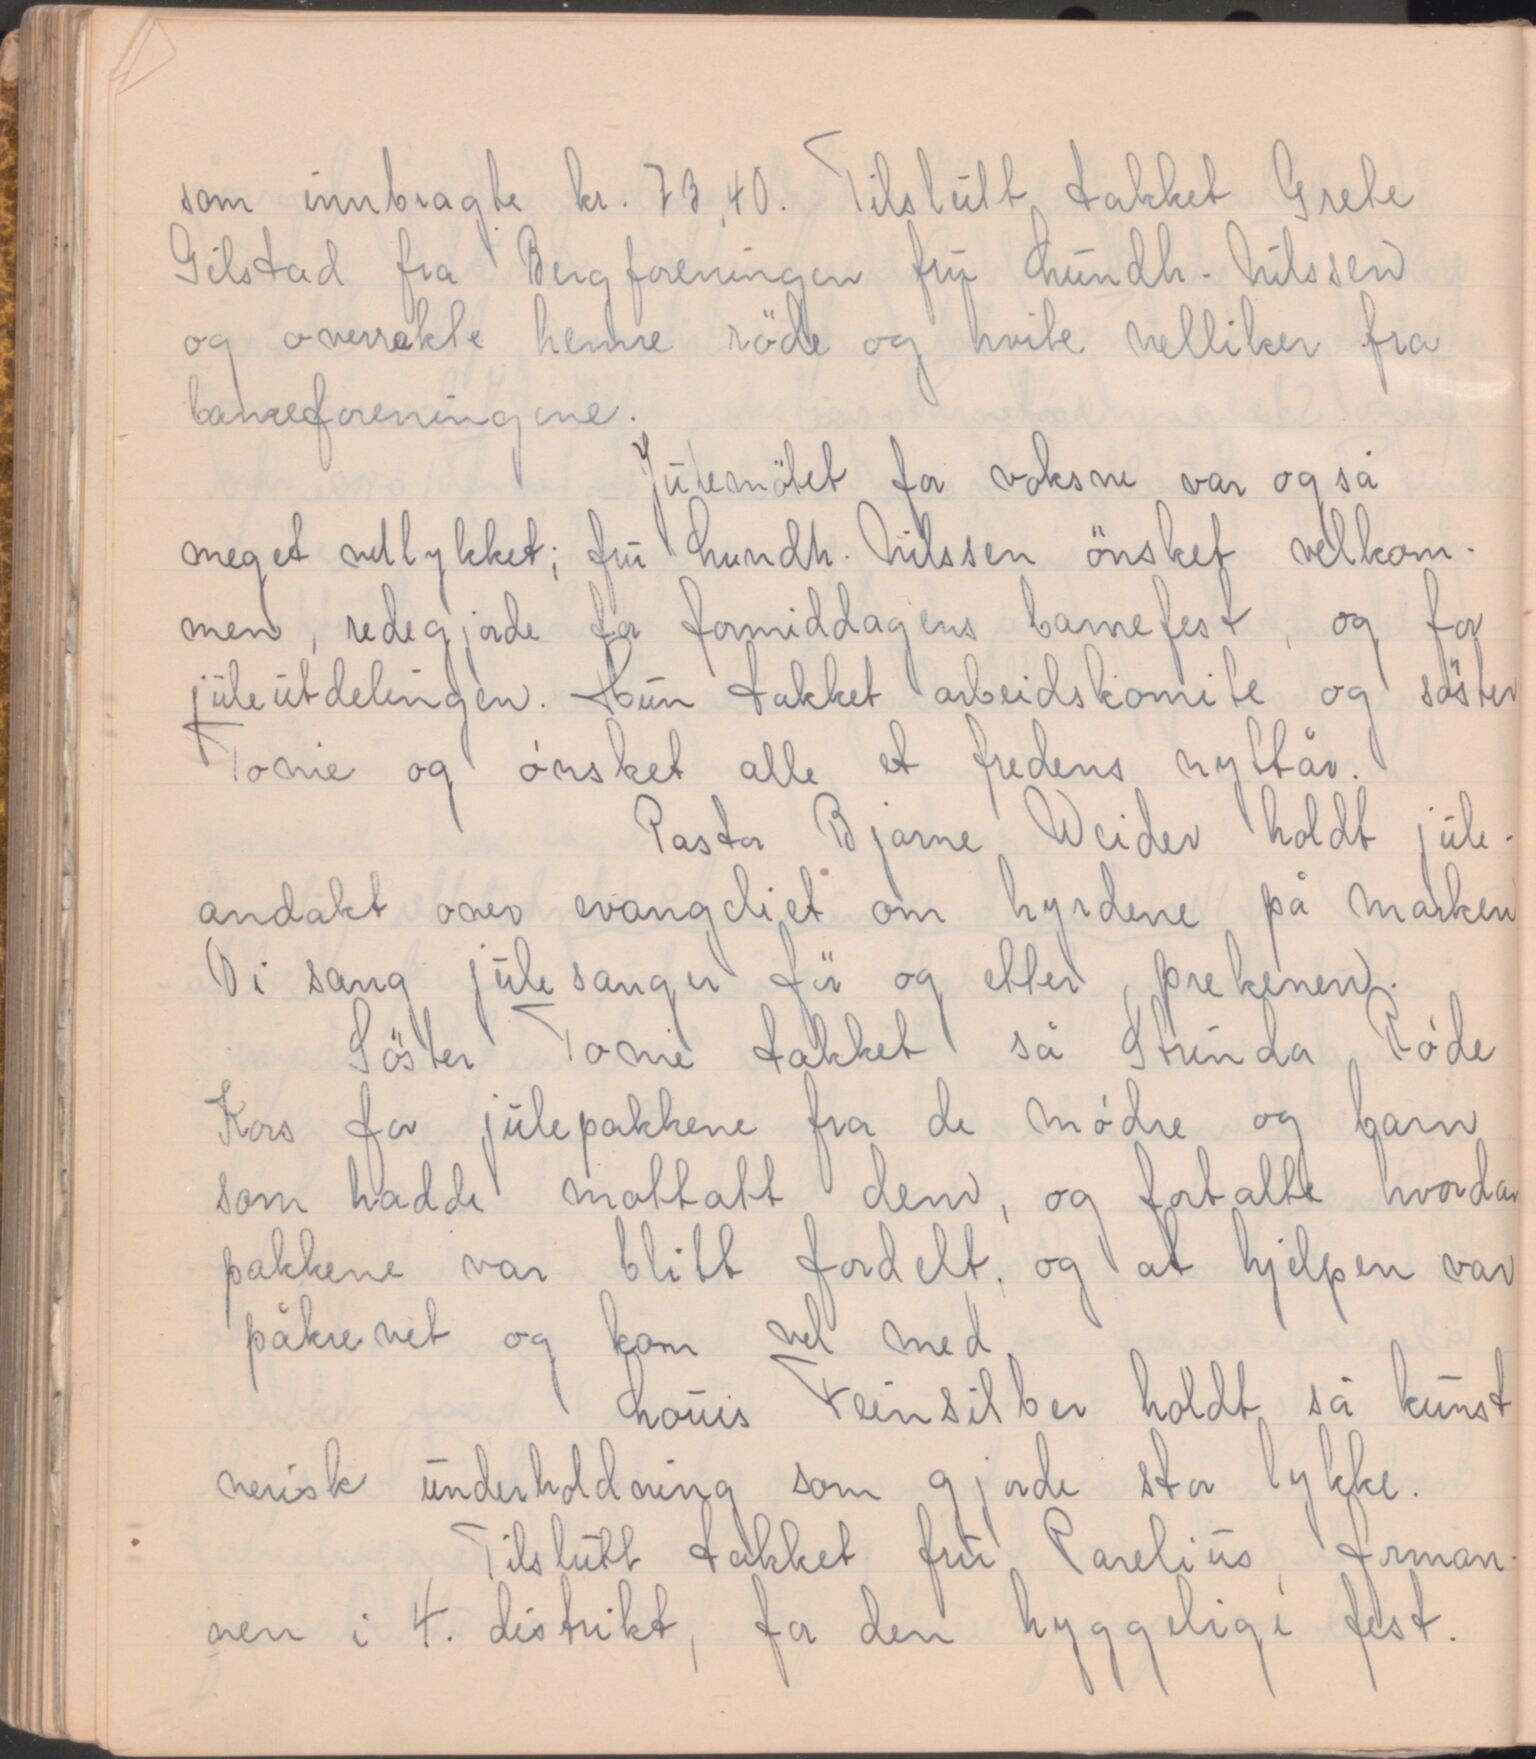 som innbragte kr. 73,40. Tilslutt takket Grete
Gilstad fra Bergforeningen fru Lundh-Nilssen
og overrakte henne röde og hvite nelliker fra
barneforeningene.
Julemötet for voksne var også
meget vellykket; fru Lundh. Nilssen önsket velkom-
men, redegjorde for formiddagens barnefest, og for
juleutdelingen. Hun takket arbeidskomite og söster
Tonie og ønsket alle et fredens nyttår.
Pastor Bjarne Weider holdt jule-
andakt over evangeliet om hyrdene på marken
Vi sang julesanger för og etter prekenen.
Söster Tonie takket så Strinda Røde
Kors for julepakkene fra de mødre og barn
som hadde mottatt dem, og fortalte hvordan
pakkene var blitt fordelt, og at hjelpen var
påkrevet og kom vel med.
Louis Feinsilber holdt så kunst
nerisk underholdning som gjorde stor lykke.
Tilslutt takket fru Parelius, forman-
nen i 4. distrikt, for den hyggelige fest.